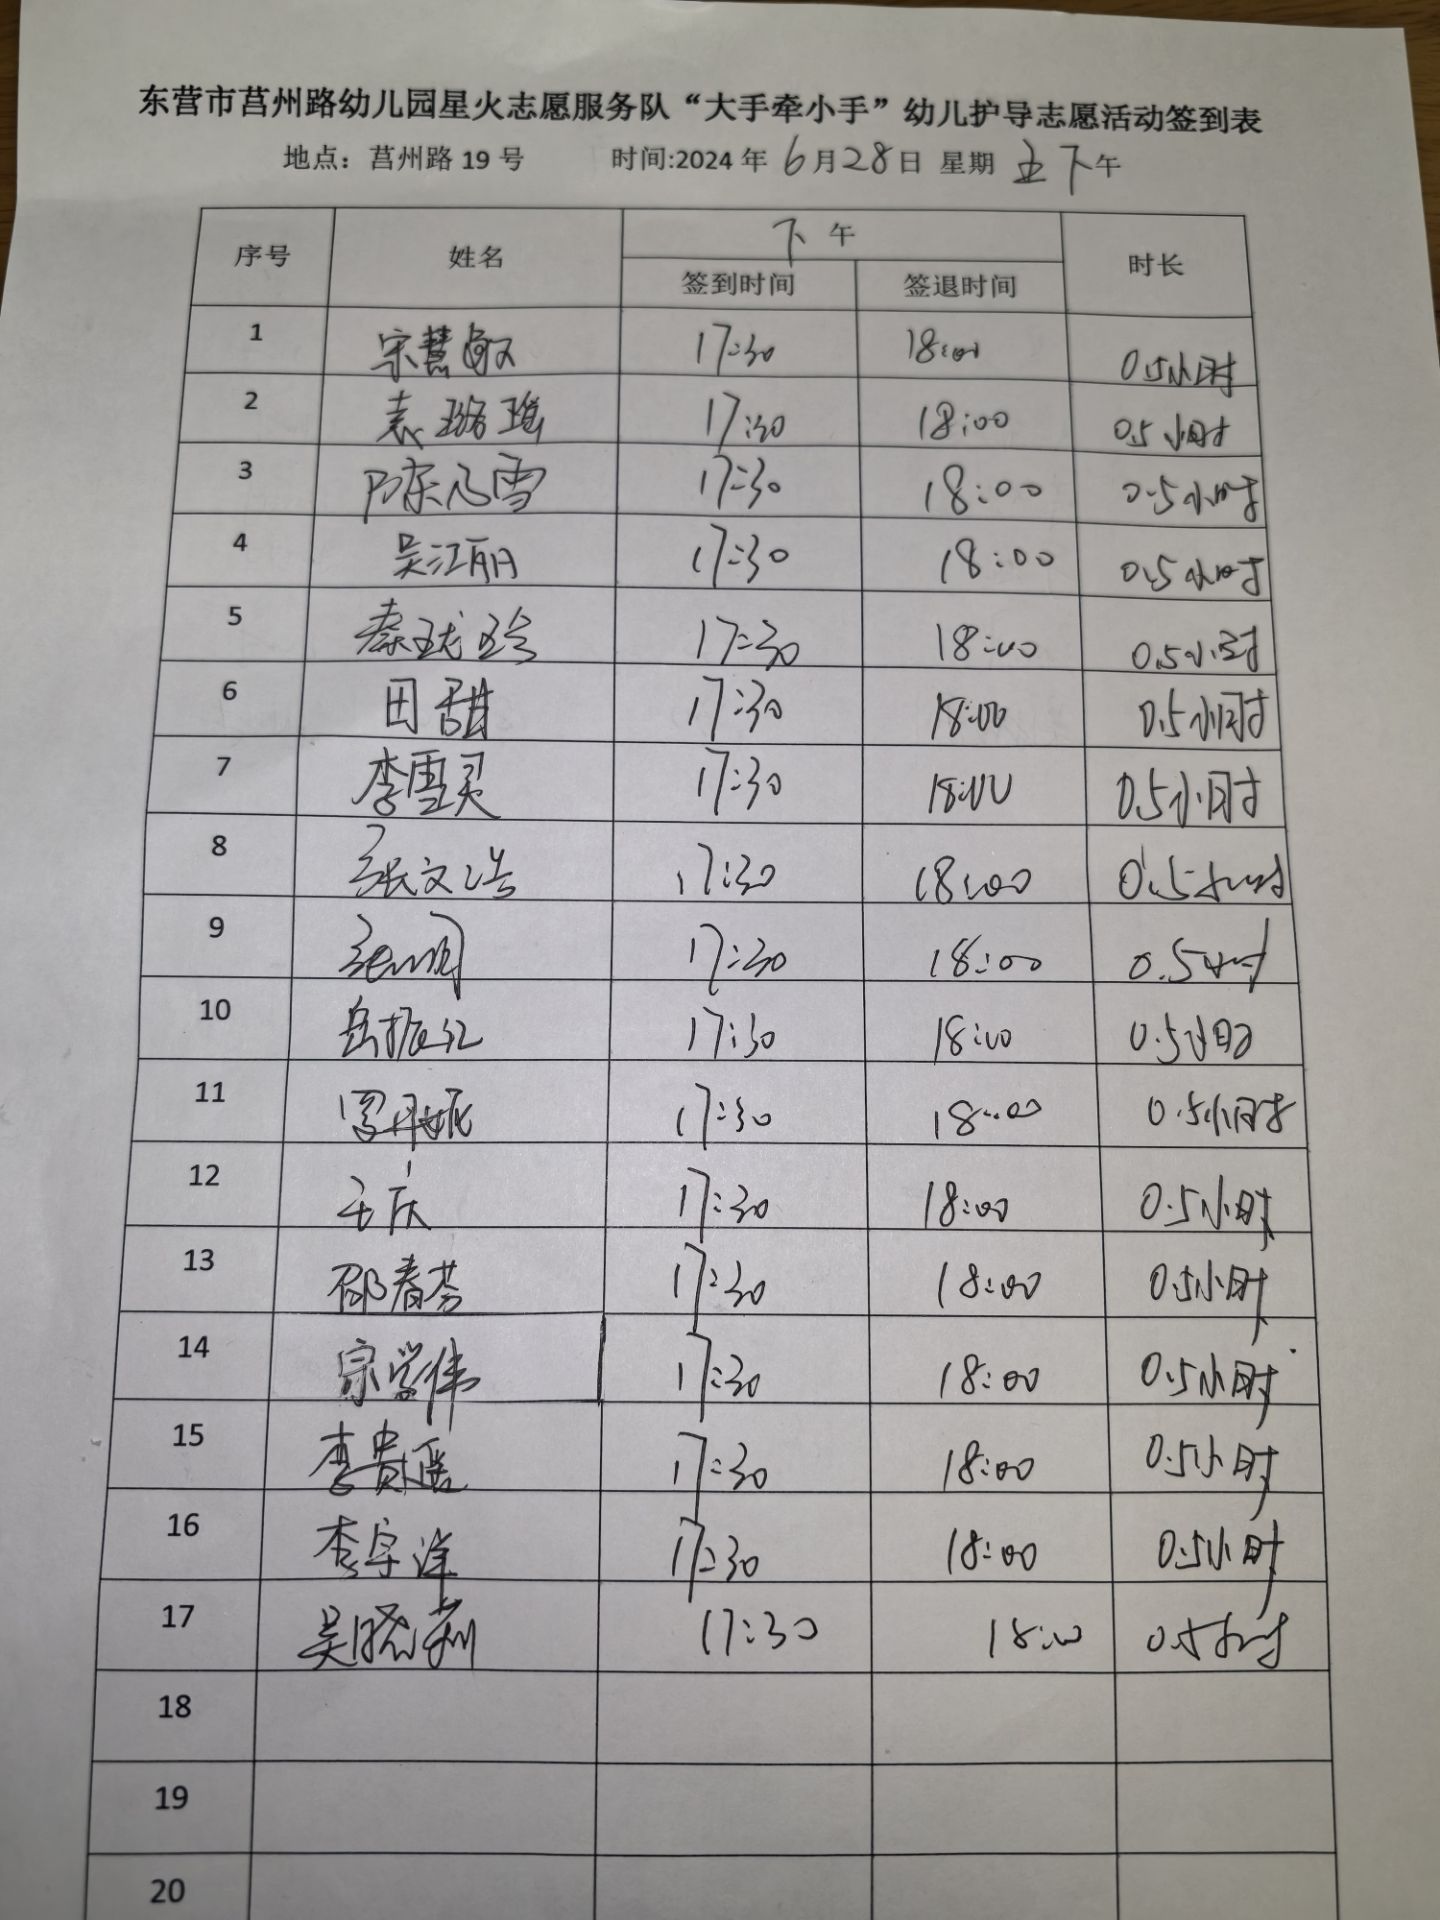 东营市莒州路幼儿园星火志愿服务队“大手牵小手”幼儿护导志愿活动签到表
地点：莒州路 19 号 时间:2024 年 6月28日 星期 五下午
序号 姓名 下午 时长
签到时间 签退时间
1 宋慧敏 17:30 18:00 0.5小时
2 袁璐瑶 17:30 18:00 0.5小时
3 陈乃雪 17:30 18:00 0.5小时
4 吴江丽 17:30 18:00 0.5小时
5 秦珑玲 17:30 18:00 0.5小时
6 田甜 17:30 18:00 0.5小时
7 李雪灵 17:30 18:00 0.5小时
8 张文浩 17:30 18:00 0.5小时
9 17:30 18:00 0.5小时
10 岳振江 17:30 18:00 0.5小时
11 罗丹妮 17:30 18:00 0.5小时
12 王庆 17:30 18:00 0.5小时
13 邵春芬 17:30 18:00 0.5小时
14 宗学伟 17:30 18:00 0.5小时
15 李贵瑶 17:30 18:00 0.5小时
16 李宇洋 17:30 18:00 0.5小时
17 吴晓莉 17:30 18:00 0.5小时
18
19
20